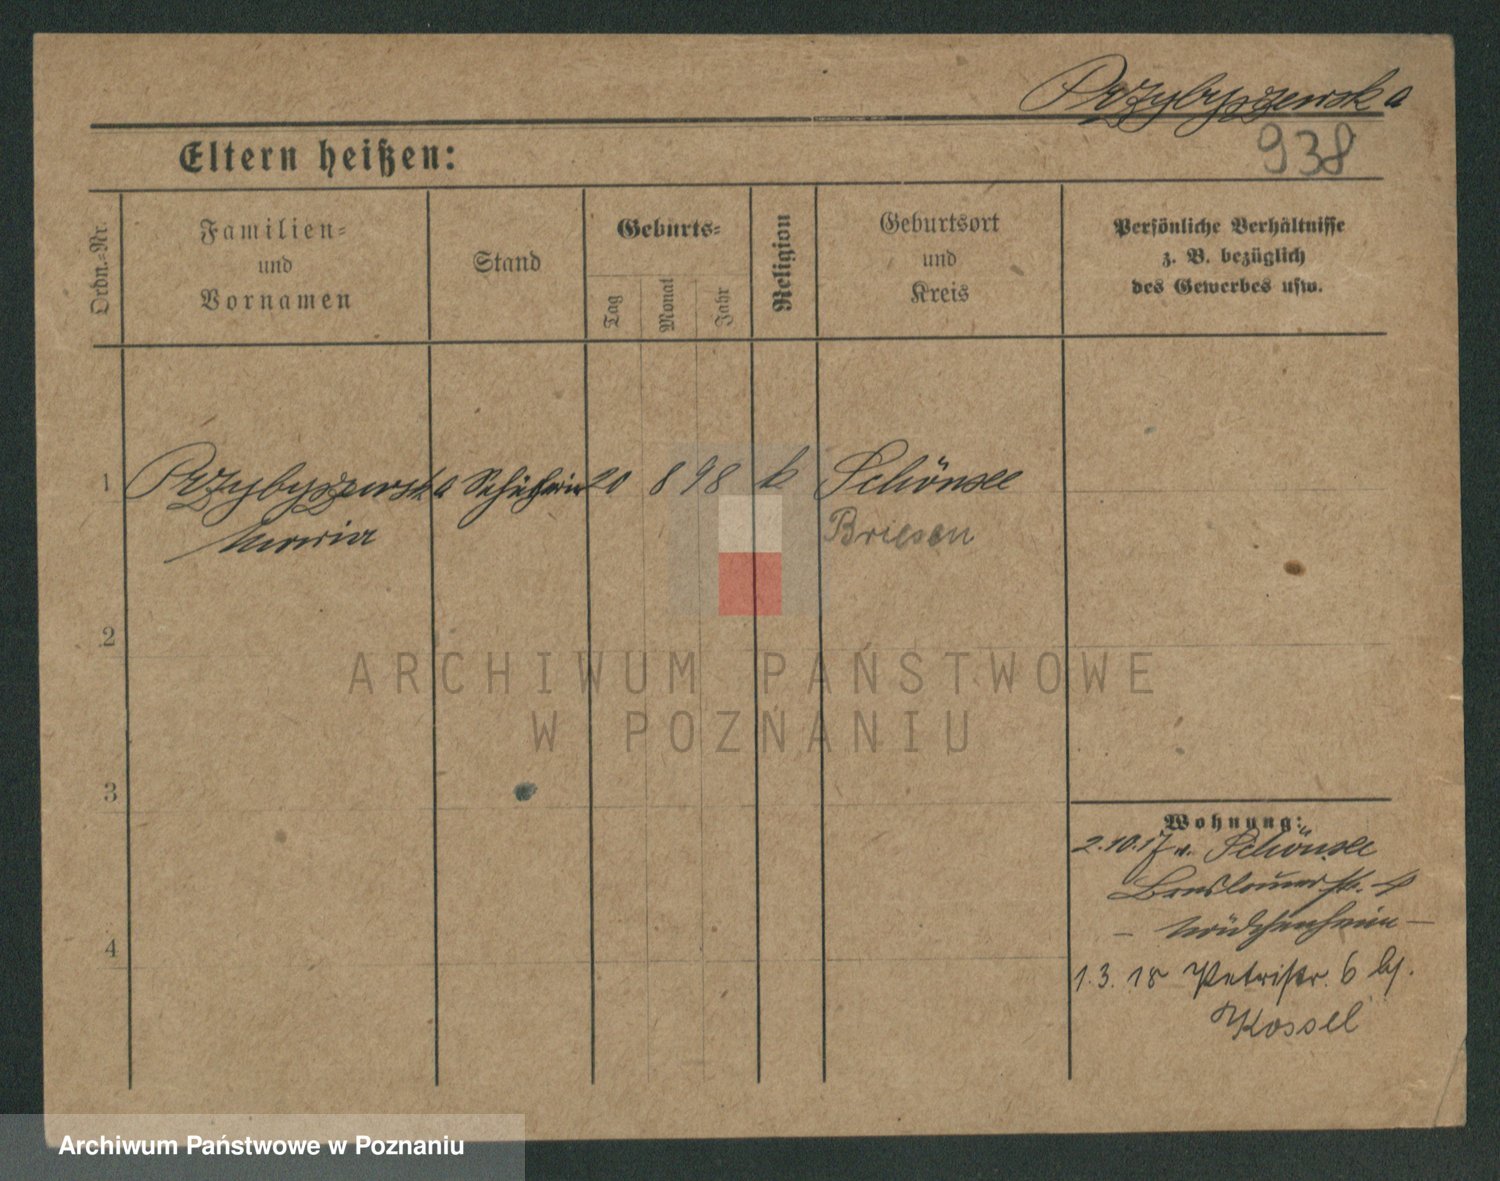 Przybyszewska
938
Eltern heißen:
Ordn.-Nr.
Familien-
und
Vornamen
Stand
Geburts-
Tag
Monat
Jahr
Religion
Geburtsort
und
Kreis
Persönliche Verhältnisse
z. B. bezüglich
des Gewerbes usw.
1 Przybyszewska Schülerin 20 8 98 k Schönsee
Maria
Briesen
2
ARCHIWUM PAŃSTWOWE
W POZNANIU
3
Wohnung:
2.10.17 v. Schönsee
4
- Mädchenheim -
1.3.18 Petristr. 6 bj.
Kossel
Archiwum Państwowe w Poznaniu